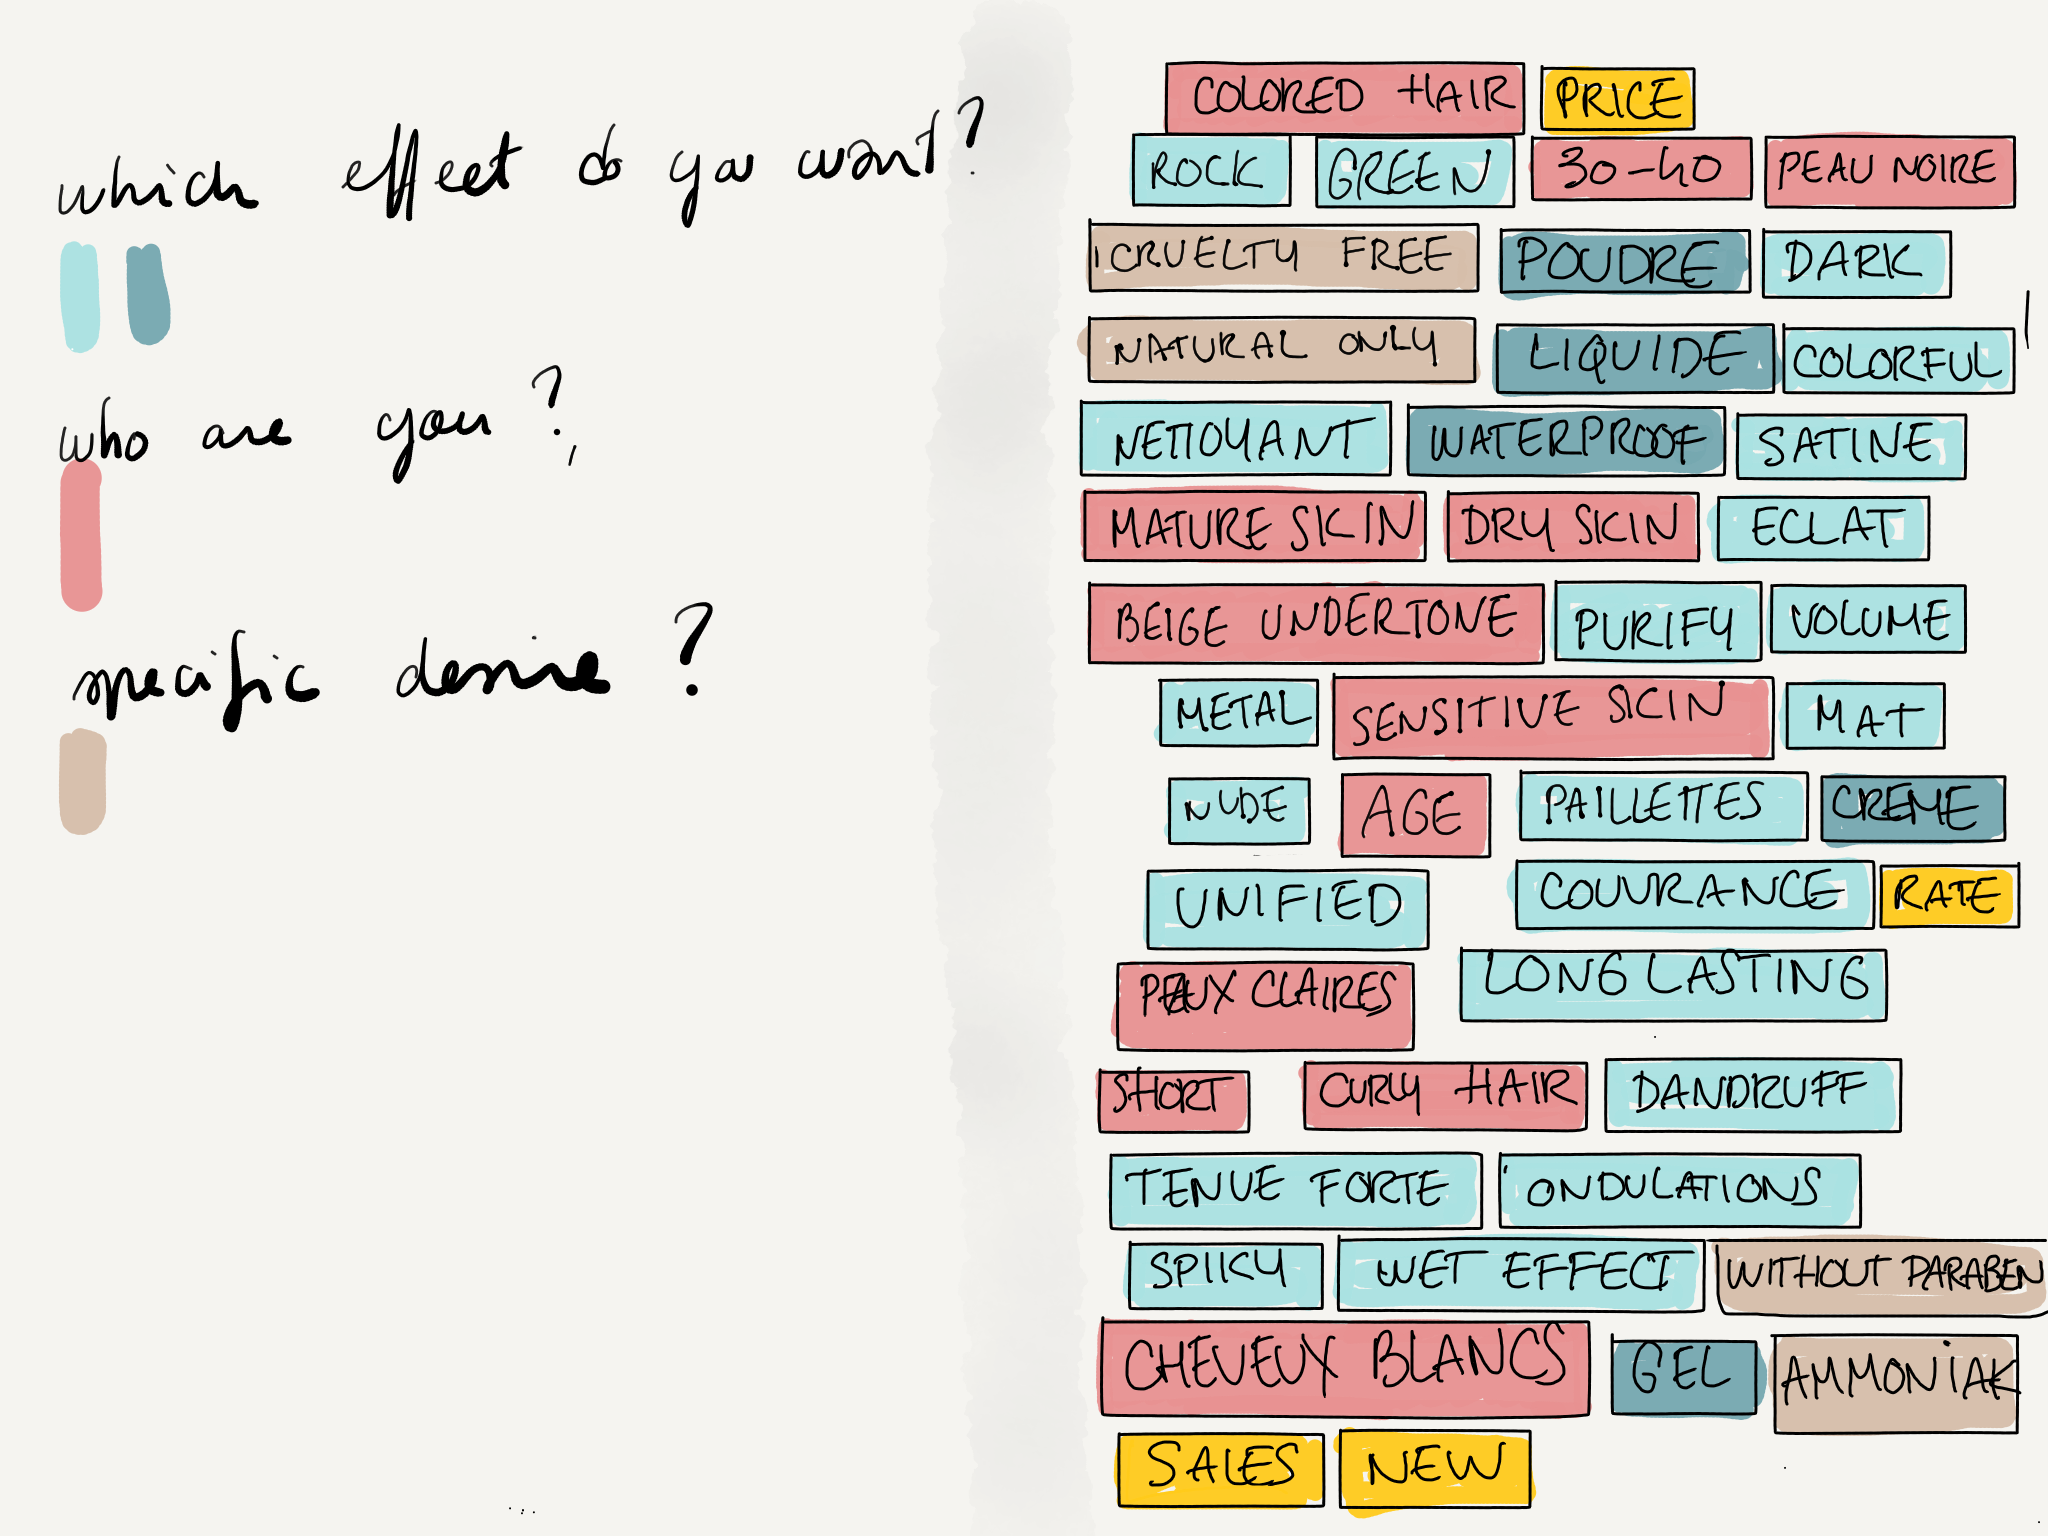 which effect do you want?
who are you?
specific desire?
COLORED HAIR PRICE
ROCK GREEN 30-40 PEAU NOIRE
CRUELTY FREE POUDRE DARK
NATURAL ONLY LIQUIDE COLORFUL
NETTOYANT WATERPROOF SATINE
MATURE SKIN DRY SKIN ECLAT
BEIGE UNDERTONE PURIFY VOLUME
METAL SENSITIVE SKIN MAT
NUDE AGE PAILLETTES CREME
UNIFIED COUVRANCE RATE
PEAUX CLAIRES LONG LASTING
SHORT CURLY HAIR DANDRUFF
TENUE FORTE ONDULATIONS
SPIKY WET EFFECT WITHOUT PARABEN
CHEVEUX BLANCS GEL AMMONIAK
SALES NEW